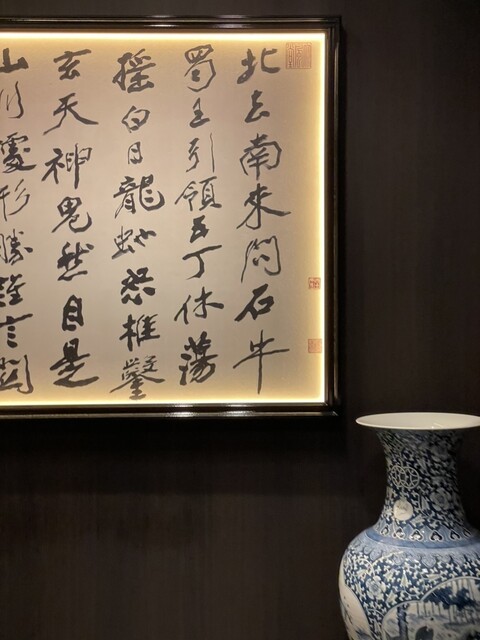 北去南來問石牛
蜀王引領五丁休蕩
搖白日龍蛇怒椎鑿
玄天神鬼愁自是
山川形勝誰言關